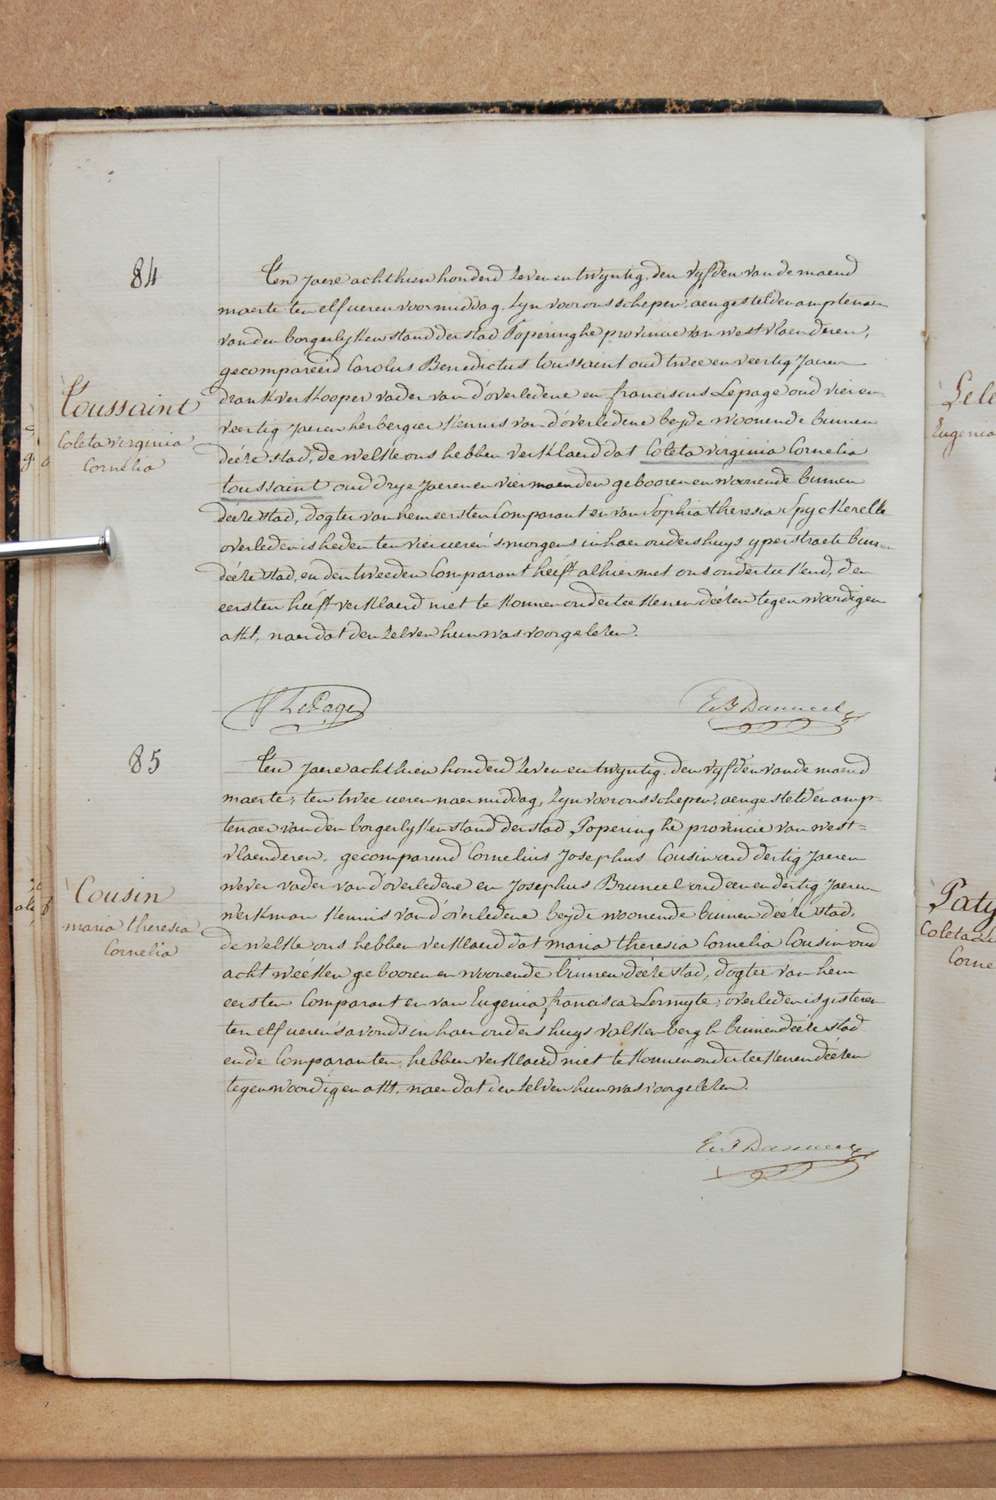 84
Toussaint
Coleta virginia
Cornelia
Ten Jaere achthien honderd zeven en twyntig, den vyfden van de maend
maerte ten elf ueren voormiddag, zyn voor ons schepen, aengestelden amptenaer
van den borgerlyken stand der stad Poperinghe provincie van westvlaenderen,
gecompareerd Carolus Benedictus toussaint oud twee en veertig Jaeren
drankverkooper vader van d'overledene en franciscus Lepage oud vier en
veertig Jaeren herbergier kennis van d'overledene beyde woonende binnen
déeze stad, de welke ons hebben verklaerd dat Coleta virginia Cornelia
toussaint oud drye Jaeren en vier maenden gebooren en woonende binnen
déeze stad, dogter van hem eersten Comparant en van Sophia theresia Spyckerelle
overleden is heden ten vier ueren s'morgens in haer ouders huys yperstraete binnen
déeze stad, en den tweeden Comparant heeft alhier met ons onderteekend, den
eersten heeft verklaerd niet te konnen onderteekenen déezen tegenwoordigen
akt, naer dat den zelven hun was voorgelezen.
F LePage
85
Cousin
maria theresia
Cornelia
Ten Jaere achthien honderd zeven en twyntig, den vyfden van de maend
maerte, ten twee ueren naermiddag, zyn voor ons schepen, aengestelden amp-
tenaer van den borgerlyken stand der stad Poperinghe provincie van west=
vlaenderen, gecompareerd Cornelius Josephus Cousin oud dertig Jaeren
wever vader van d'overledene en Josephus Bruneel oud een en dertig Jaeren
werkman kennis van d'overledene beyde woonende binnen déeze stad,
de welke ons hebben verklaerd dat maria theresia Cornelia Cousin oud
acht wéeken gebooren en woonende binnen déeze stad, dogter van hem
eersten Comparant en van Eugenia francisca Lermyte, overleden is gisteren
ten elf ueren s'avonds in haer ouders huys valkenberg binnen déeze stad
en de Comparanten hebben verklaerd niet te konnen onderteekenen déezen
tegenwoordigen akt, naer dat den zelven hun was voorgelezen.
Lele
Eugenia
Paty
Coleta
Corne